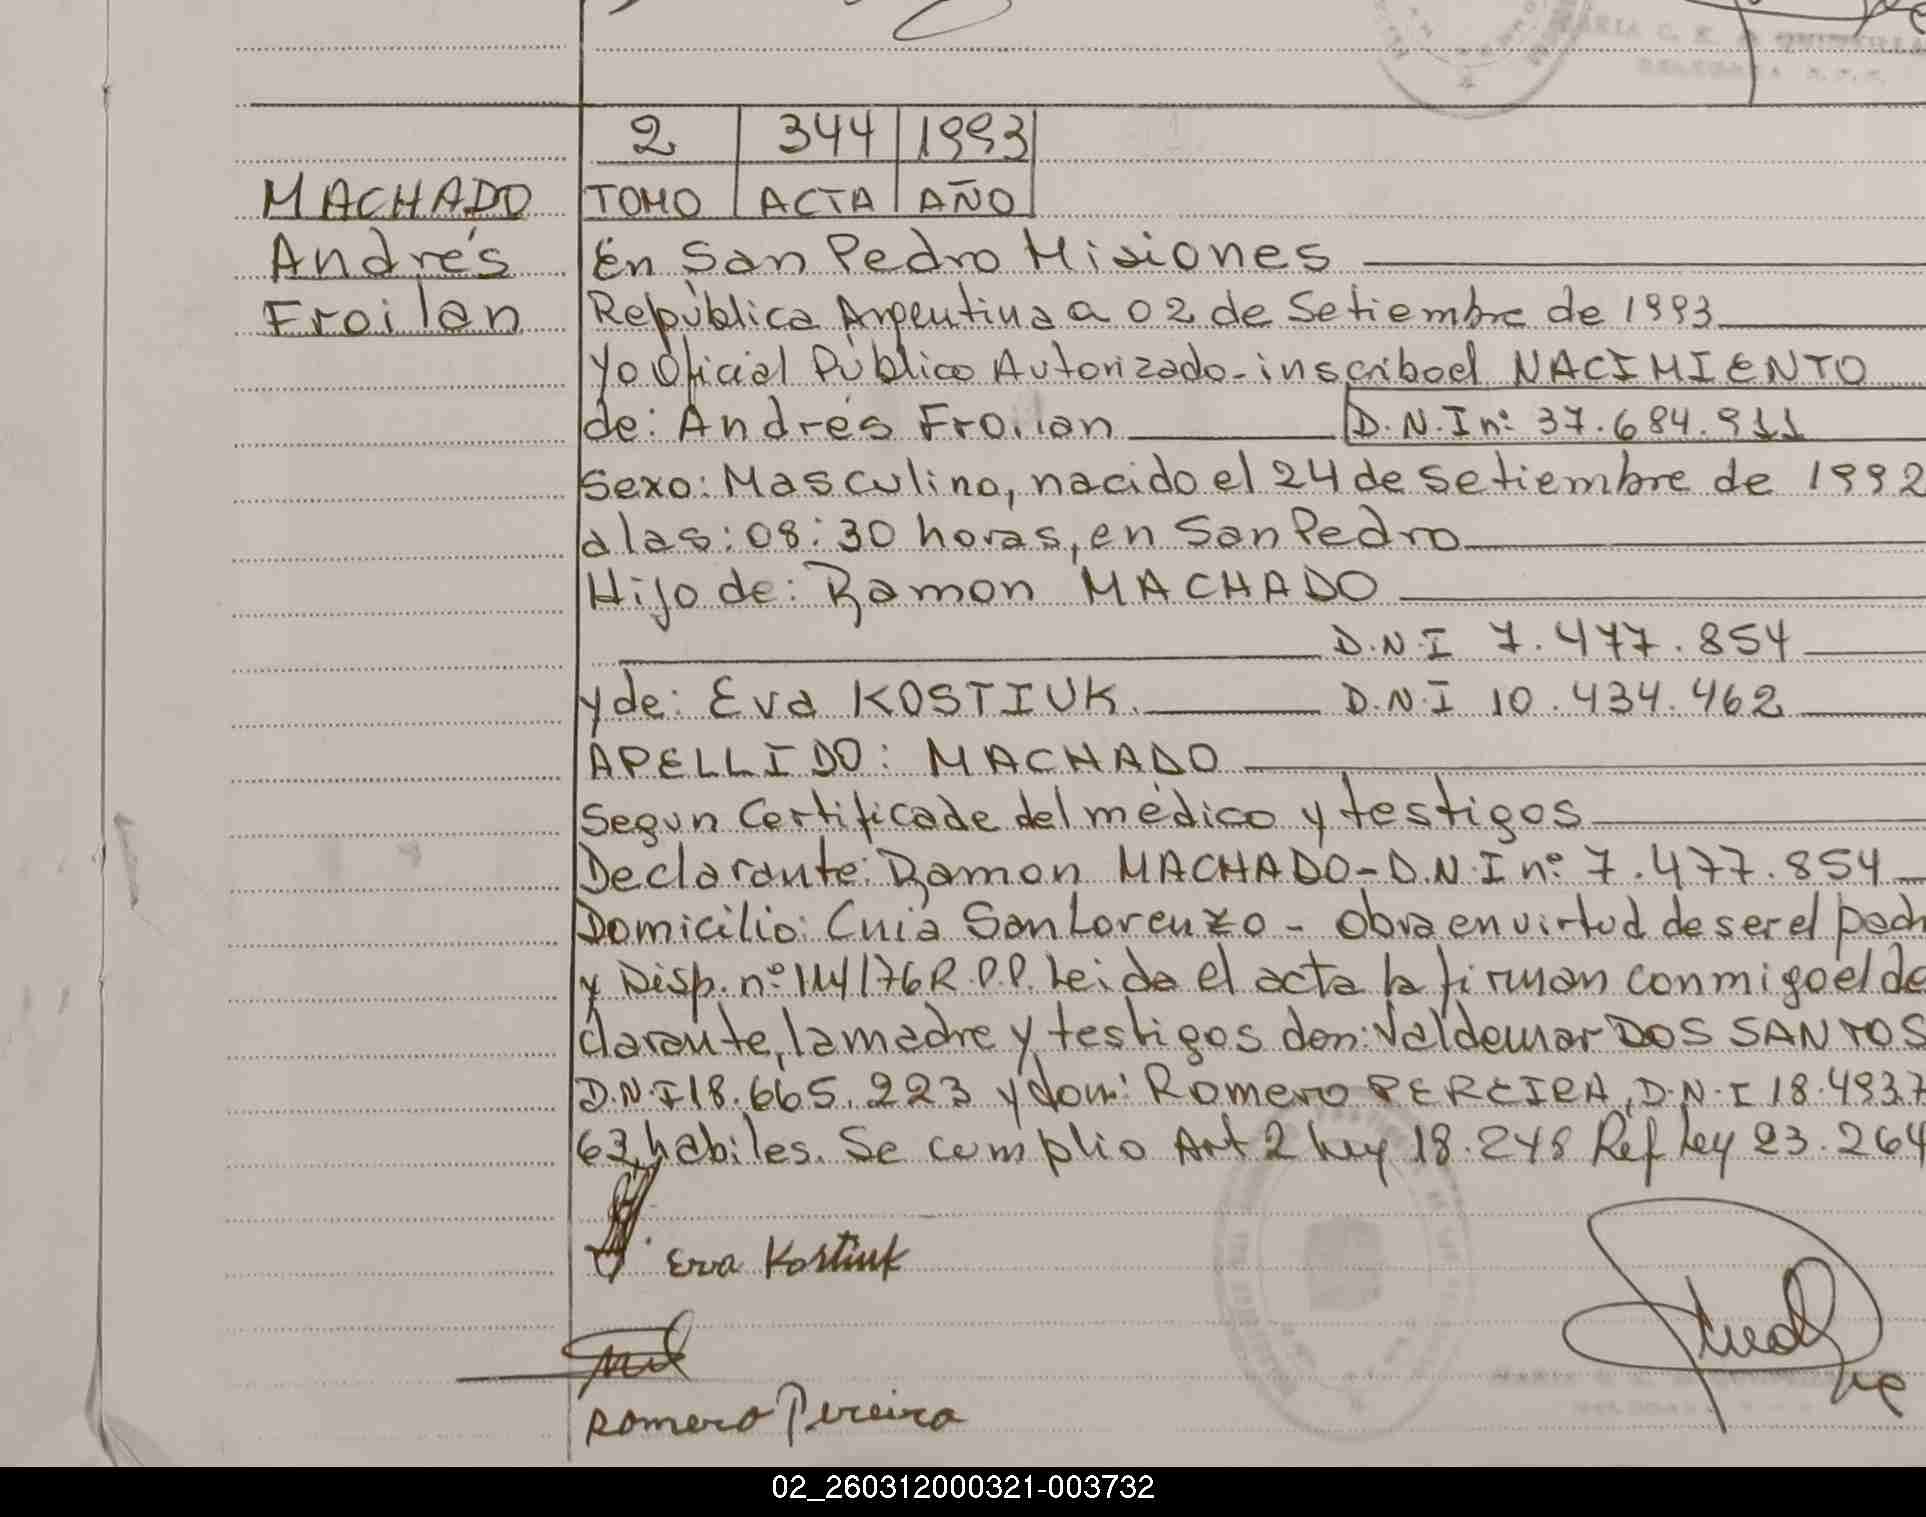 2 344 1993
MACHADO TOMO ACTA AÑO
Andrés En San Pedro Misiones
Froilan República Argentina a 02 de Setiembre de 1993
Yo Oficial Público Autorizado - inscribo el NACIMIENTO
de: Andrés Froilan D.N.I nº 37.684.911
Sexo: Masculino, nacido el 24 de setiembre de 1992
a las: 08:30 horas, en San Pedro
Hijo de: Ramon MACHADO
D.N.I 7.477.854
y de: Eva KOSTIUK. D.N.I 10.434.462
APELLIDO: MACHADO
Segun Certificado del médico y testigos
Declarante: Ramon MACHADO - D.N.I nº 7.477.854
Domicilio: Cuia San Lorenzo - Obra en virtud de ser el padr
y Disp. nº 114/76 R.P.P. Leida el acta la firman conmigo el de
clarante, la madre y testigos don: Valdemar DOS SANTOS
D.N.I 18.665.223 y don: Romero PEREIRA, D.N.I 18.493.7
63, habiles. Se cumplio Art 2 Ley 18.248 Ref Ley 23.264
Eva Kostiuk
Romero Pereira
02_260312000321-003732